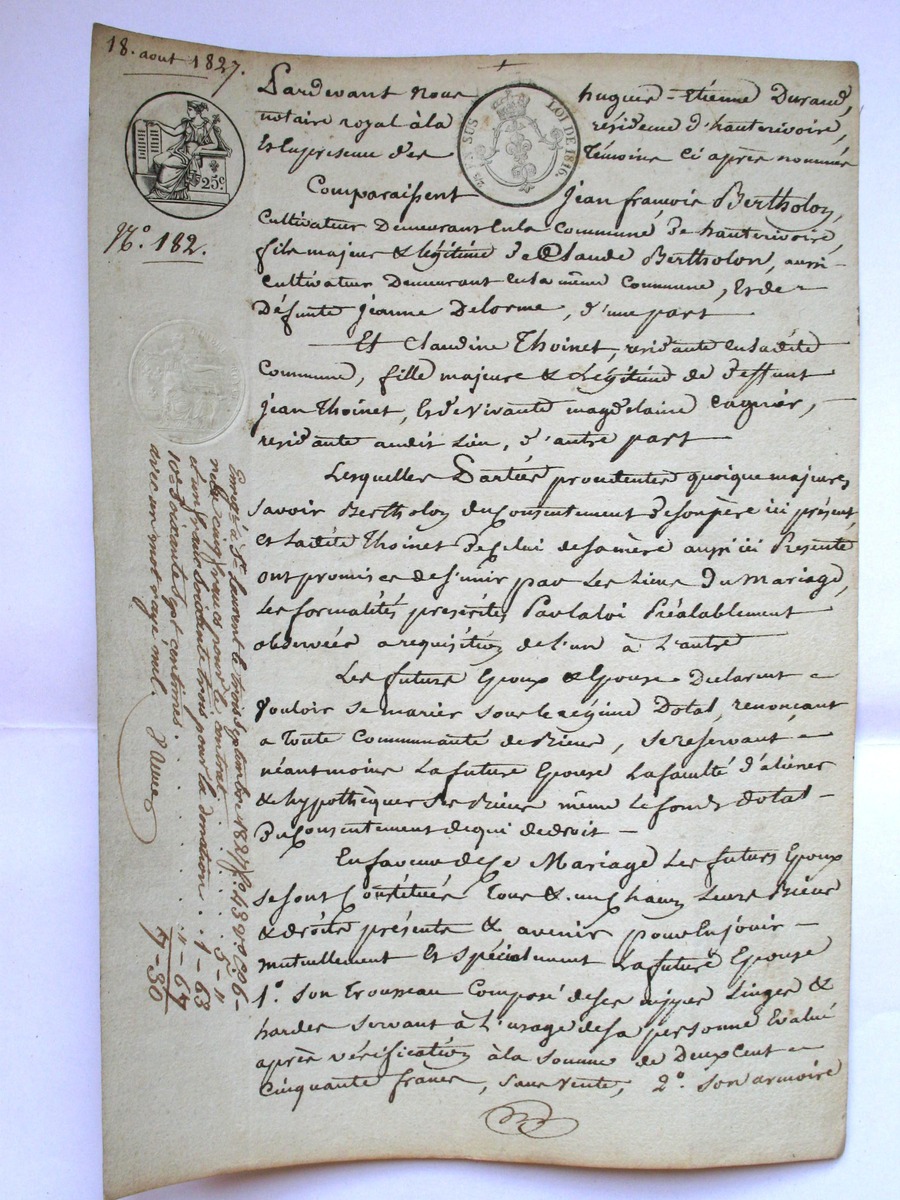 18. aout 1827.
25c
N.o 182.
LOI DE 1816.
EN SUS
Pardevant nous hugues-étienne Durand,
notaire royal à la résidence d'hauterivoire,
Et En présence des témoins ci après nommés
Comparaissent Jean françois Bertholon,
cultivateur Demeurant En la Commune de hauterivoire,
fils majeur & légitime de Claude Bertholon, aussi
cultivateur Demeurant En la même Commune, Et de
Défunte Jeanne Delorme, d'une part
Et Claudine Thoinet, résidante En ladite
Commune, fille majeure & Légitime de deffunt
Jean Thoinet, Et de vivante magdelaine
résidante audit Lieu, d'autre part
Lesquelles Parties procédentes quoique majeures
savoir Bertholon du Consentement de son père ici présent,
et Ladite Thoinet de Celui de sa mère aussi ici Présente
ont promis de s'unir par Les Liens du Mariage,
Les formalités présérites Par la loi Préalablement
observées a réquisition de l'un à L'autre
Les futurs Epoux & Epouse Déclarent
Vouloir se marier sous le régime Dotal, renonçant
a Toute Communauté de Biens, se réservant
néantmoins La future Epouse La faculté d'aliéner
& hypothèquer ses Biens même le fonds dotal
Du Consentement de qui de droit
En faveur de Ce Mariage Les futurs Epoux
se sont Constitués Tous & un Chacun Leurs Biens
& droits présents & avenir pour En jouir
mutuellement Et spécialement La future Epouse
1.o son Trousseau Composé de ses nippes Linges &
hardes servant à L'usage de sa personne Evalué
après vérification à la somme de Deux Cent
Cinquante francs, sans vente, 2.o son armoire
Enregé à St. Laurent le trois septembre 1827 fo. 43 vo. Ces 6
cinq francs pour le contrat 5 - "
un franc soixante trois pour la donation 1 - 63
10e soixante sept centimes. " - 67
avec un mot rayé nul. 7 - 30